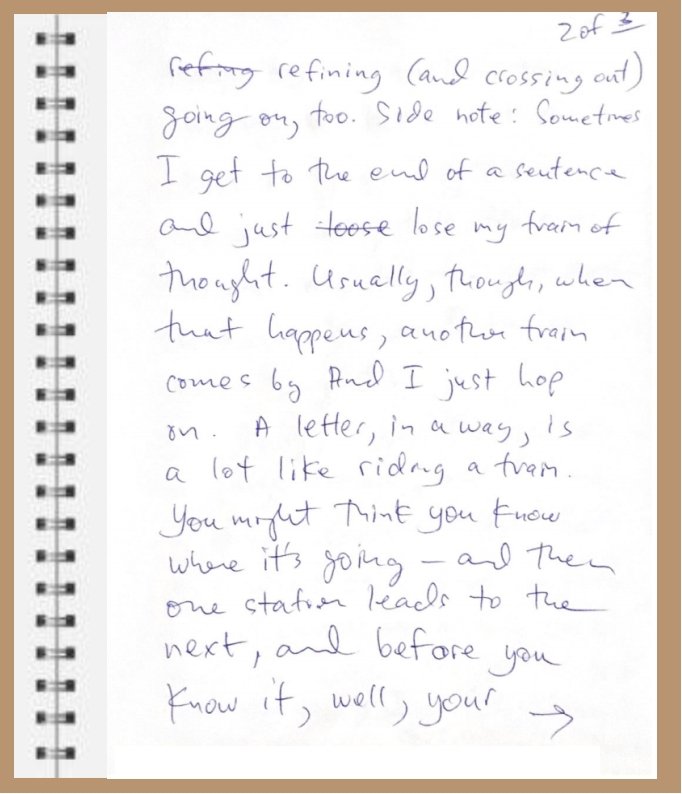 2 of 3
refing refining (and crossing out)
going on, too. Side note: Sometimes
I get to the end of a sentence
and just loose lose my train of
thought. Usually, though, when
that happens, another train
comes by And I just hop
on. A letter, in a way, is
a lot like riding a train.
You might think you know
where it's going – and then
one station leads to the
next, and before you
know it, well, your →